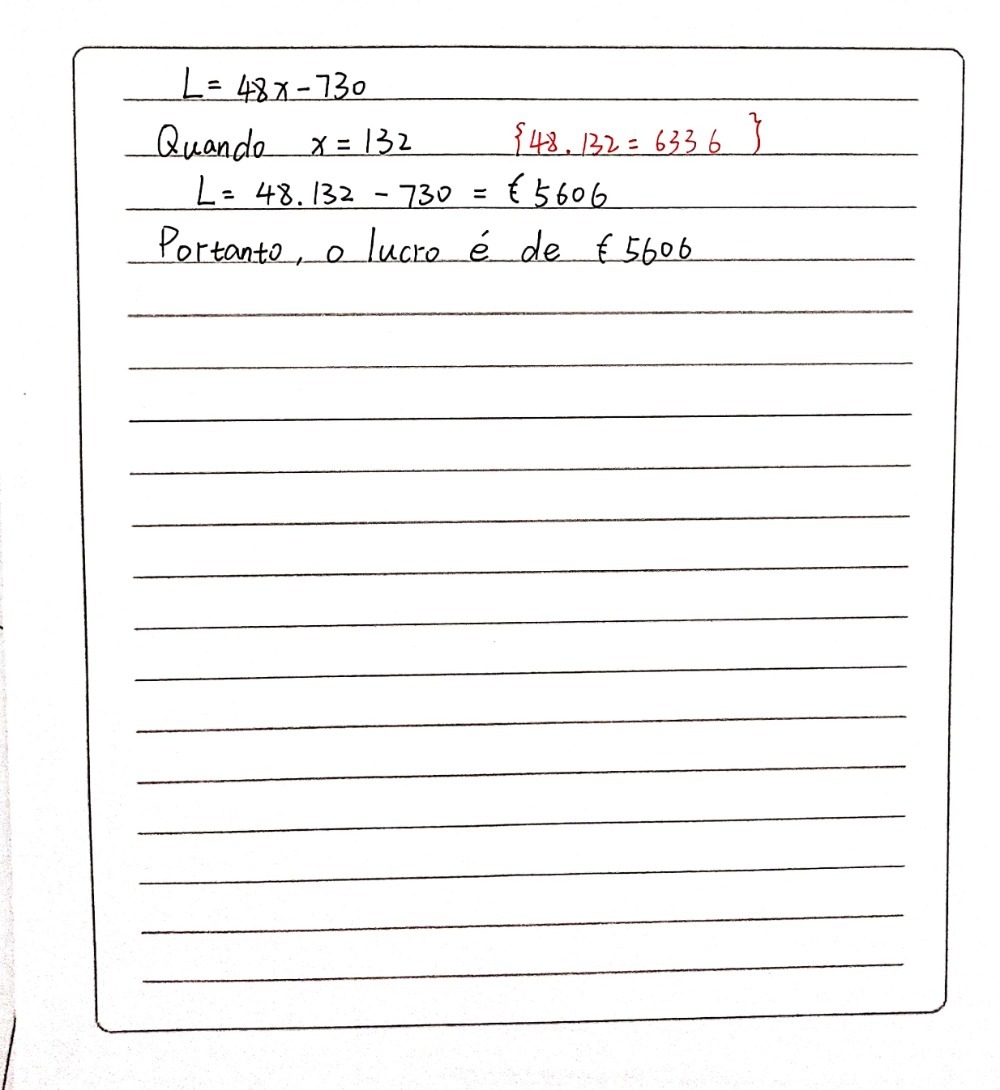 L= 48x-730
Quando x = 132 {48.132 = 6336}
L= 48.132 - 730 = € 5606
Portanto, o lucro é de € 5606